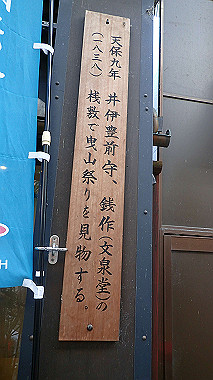 天保九年 井伊豊前守、銭作(文泉堂)の
(一八三八) 桟敷で曳山祭りを見物する。